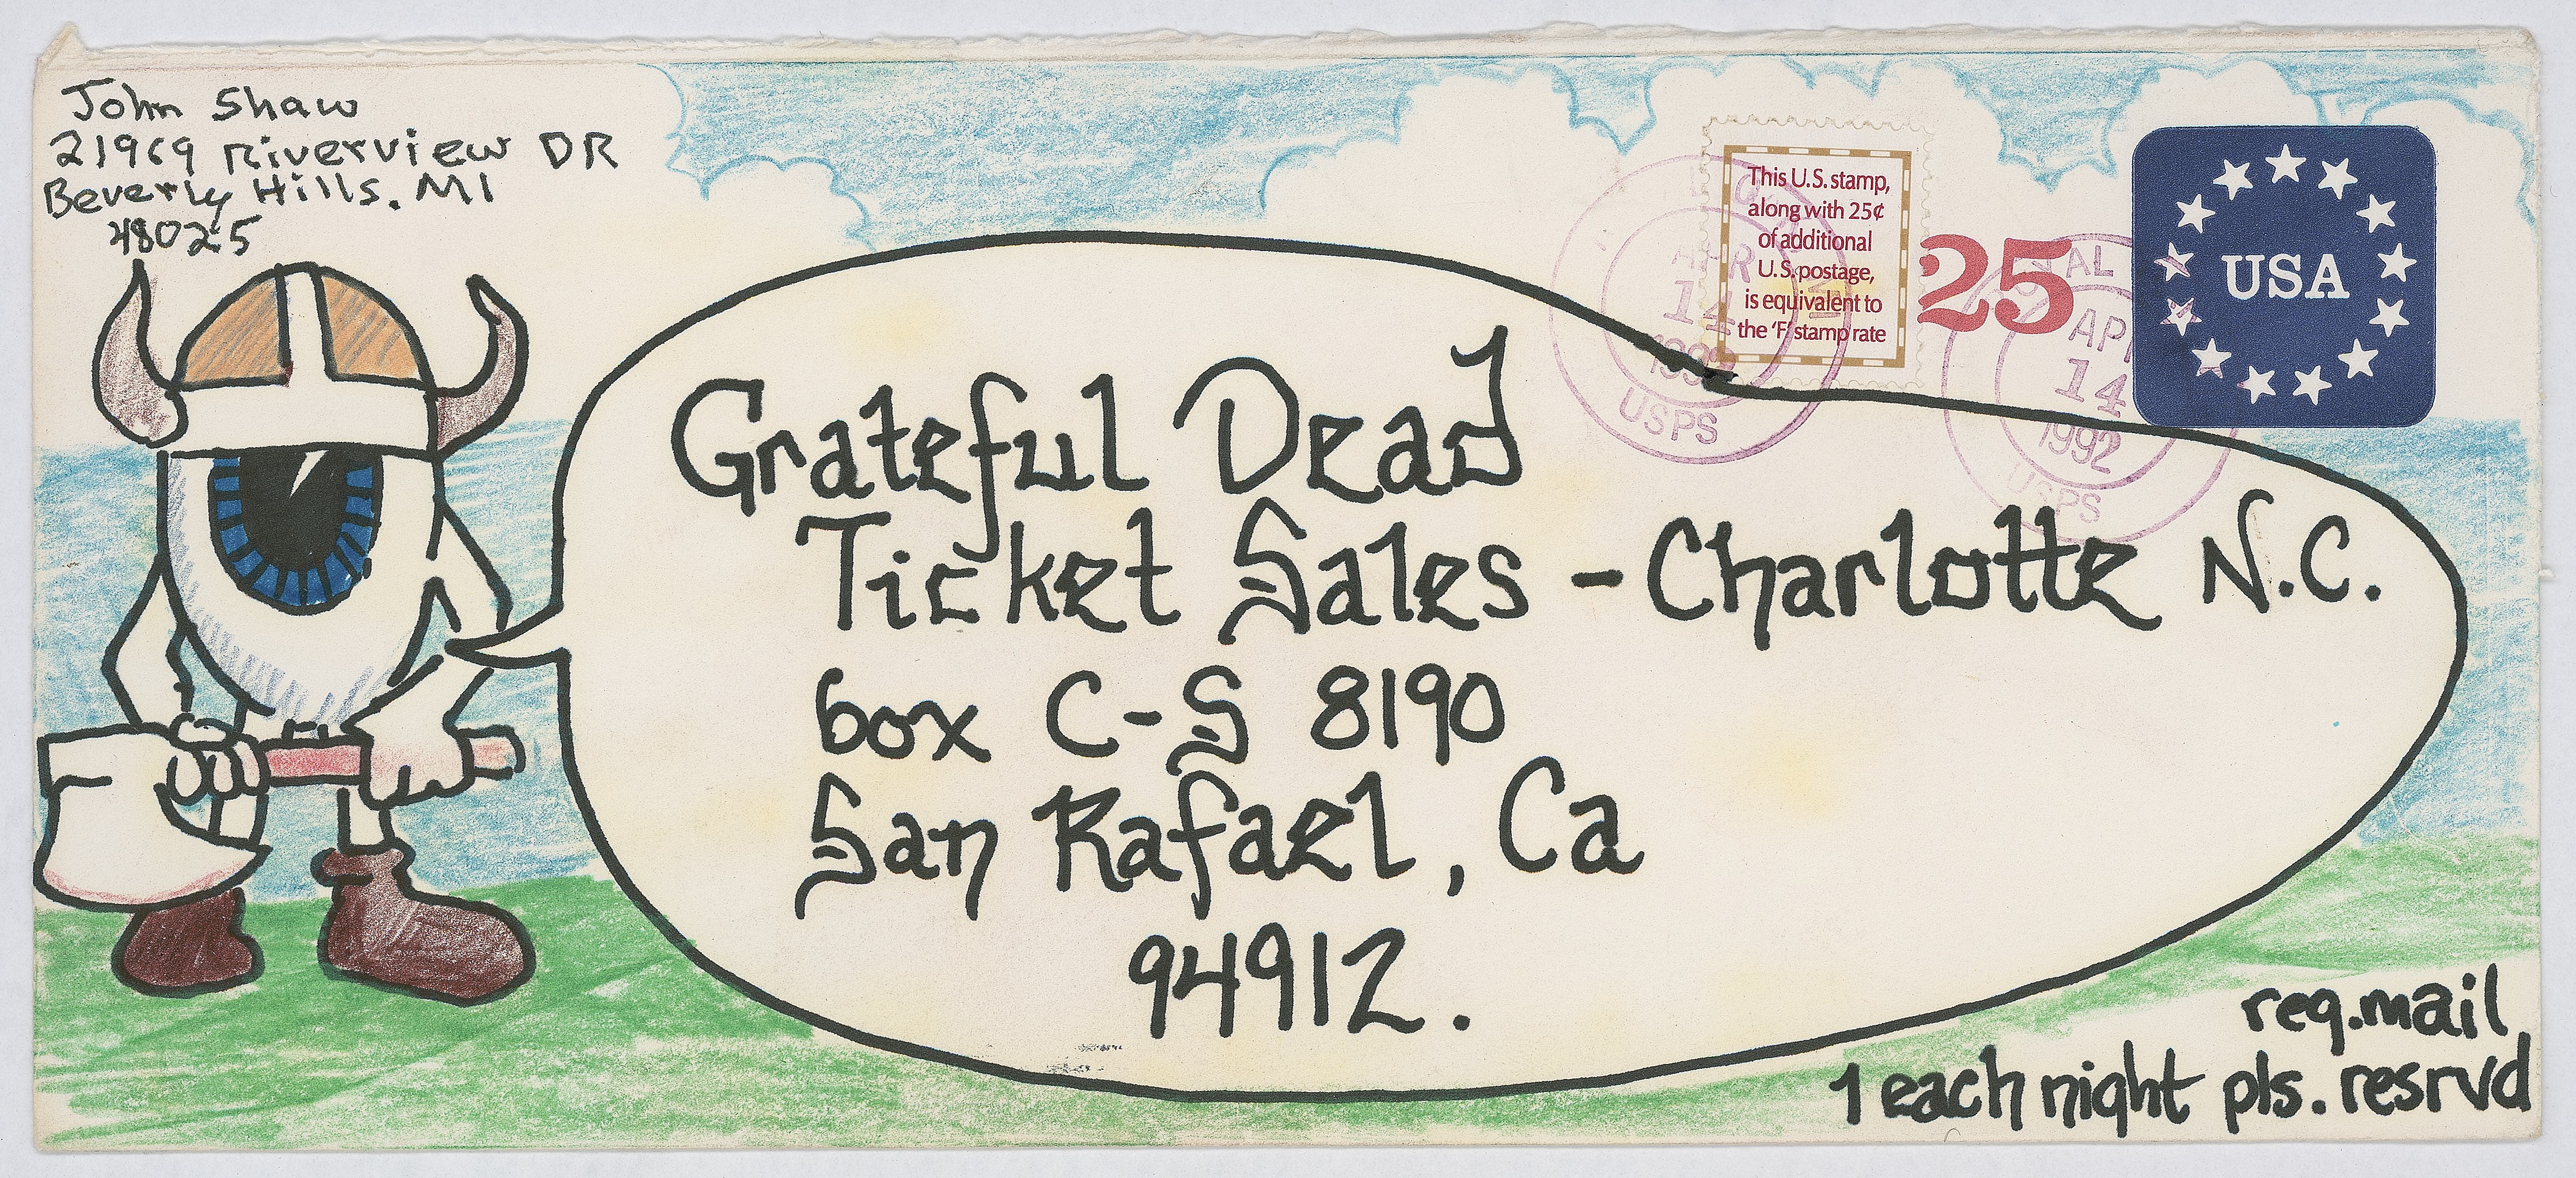 John Shaw
21969 Riverview DR
Beverly Hills, MI
48025
This U.S. stamp,
along with 25¢
of additional
U.S. postage,
is equivalent to
the ‘F’ stamp rate
25
USA
APR
14
1992
USPS
APR
14
1992
USPS
Grateful Dead
Ticket Sales - Charlotte N.C.
box C-S 8190
San Rafael, Ca
94912.
req. mail
1 each night pls. resrvd